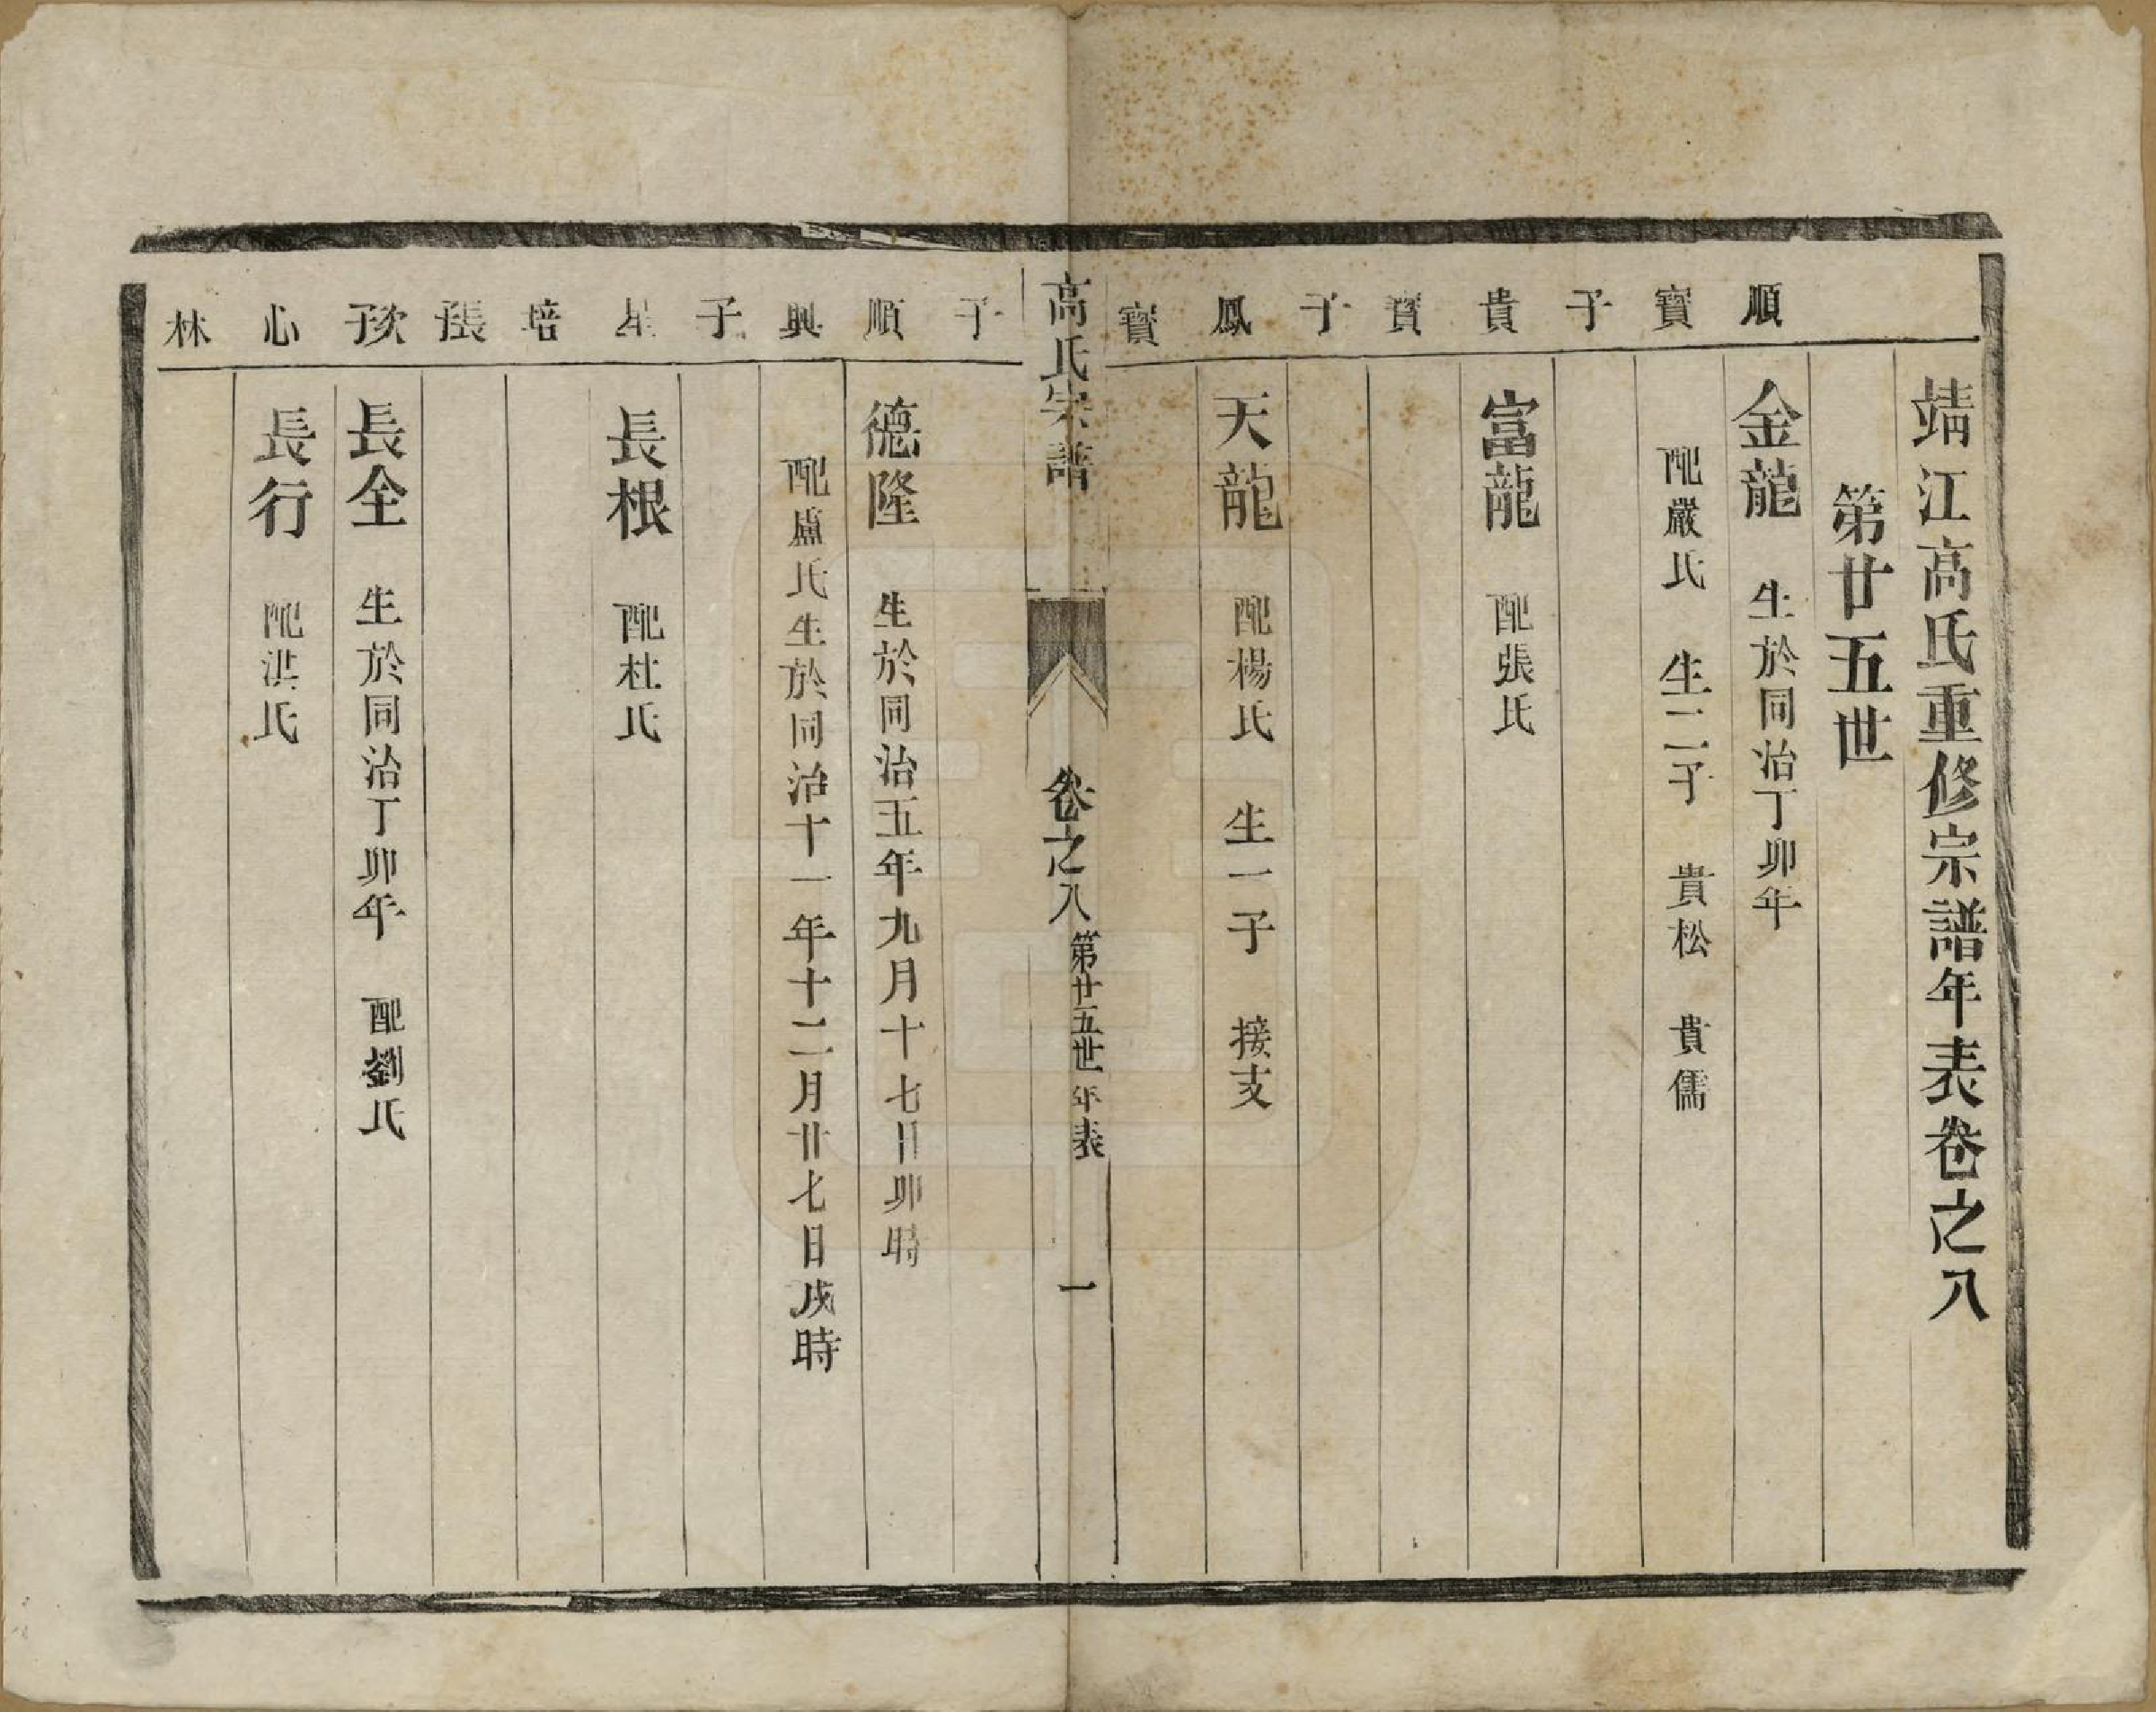 靖江高氏重修宗譜年表卷之八
第廿五世
順
金龍　生於同治丁卯年
寶
配嚴氏　生二子　貴松　貴儒
子
貴
富龍　配張氏
寶
子
鳳
天龍　配楊氏　生一子　接支
寶
高氏宗譜　卷之八　第廿五世年表　一
子
順
德隆　生於同治五年九月十七日卯時
興
配盧氏生於同治十一年十二月廿七日戌時
子
星
長根　配杜氏
培
子張
子欽
長全　生於同治丁卯年　配劉氏
心
長行　配洪氏
林